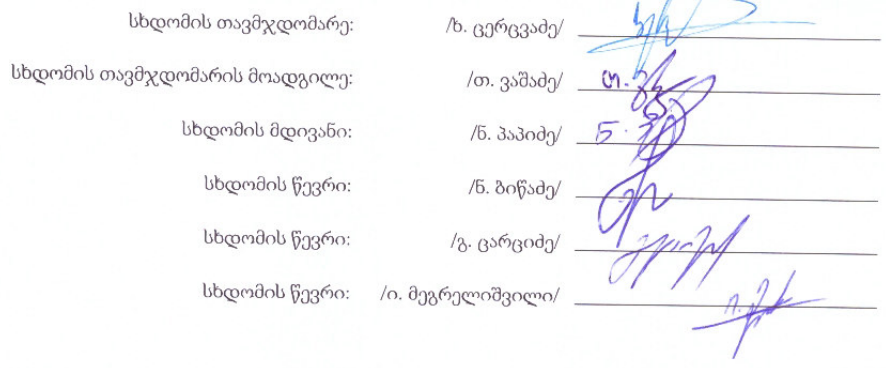 სხდომის თავმჯდომარე: /ხ. ცერცვაძე/
სხდომის თავმჯდომარის მოადგილე: /თ. ვაშაძე/ თ.
სხდომის მდივანი: /ნ. პაპიძე/ ნ.
სხდომის წევრი: /ნ. ბიწაძე/
სხდომის წევრი: /გ. ცარციძე/
სხდომის წევრი: /ი. მეგრელიშვილი/